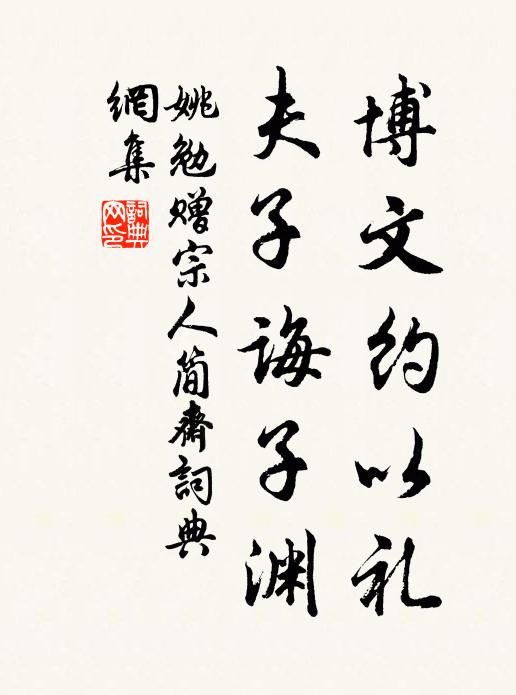 博文约以礼
夫子诲子渊
姚勉赠宗人简斋詞典
網集
詞典網印